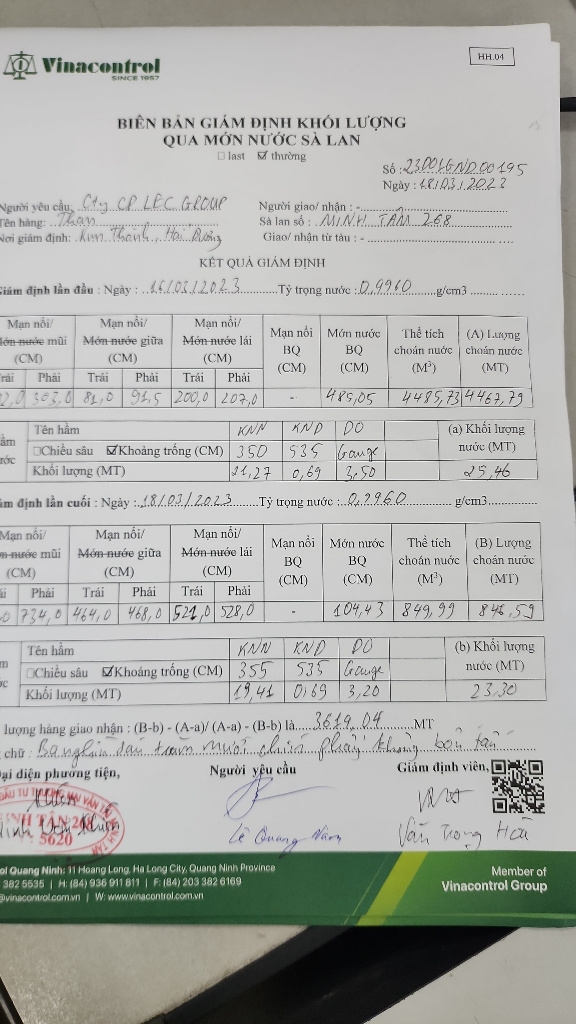 Vinacontrol
SINCE 1957
HH.04
BIÊN BẢN GIÁM ĐỊNH KHỐI LƯỢNG
QUA MỚN NƯỚC SÀ LAN
☐ last ☑ thường
Số : 23D01GND00195
Ngày : 18/03/2023
Người yêu cầu: Cty CP LEC GROUP
Người giao/ nhận : -
Tên hàng: Than
Sà lan số : MINH TÂM 268
Nơi giám định: Kim Thành, Hải Dương
Giao/ nhận từ tàu : -
KẾT QUẢ GIÁM ĐỊNH
Giám định lần đầu : Ngày : 16/03/2023 Tỷ trọng nước : 0,9960 g/cm3
Mạn nổi/ Mớn nước mũi (CM) Mạn nổi/ Mớn nước giữa (CM) Mạn nổi/ Mớn nước lái (CM) Mạn nổi BQ (CM) Mớn nước BQ (CM) Thể tích choán nước (M³) (A) Lượng choán nước (MT)
Trái Phải Trái Phải Trái Phải
2,0 303,0 81,0 91,5 200,0 207,0 - 485,05 4485,73 4467,79
Tên hầm KNN KND DO (a) Khối lượng nước (MT)
☐Chiều sâu ☑Khoảng trống (CM) 350 535 Gauge
Khối lượng (MT) 21,27 0,69 3,50 25,46
ám định lần cuối : Ngày : 18/03/2023 Tỷ trọng nước : 0,9960 g/cm3
Mạn nổi/ Mớn nước mũi (CM) Mạn nổi/ Mớn nước giữa (CM) Mạn nổi/ Mớn nước lái (CM) Mạn nổi BQ (CM) Mớn nước BQ (CM) Thể tích choán nước (M³) (B) Lượng choán nước (MT)
ái Phải Trái Phải Trái Phải
,0 734,0 464,0 468,0 521,0 528,0 - 104,43 849,99 846,59
Tên hầm KNN KND DO (b) Khối lượng nước (MT)
☐Chiều sâu ☑Khoảng trống (CM) 355 535 Gauge
Khối lượng (MT) 19,41 0,69 3,20 23,30
lượng hàng giao nhận : (B-b) - (A-a)/ (A-a) - (B-b) là 3619,04 MT
chữ : Ba nghìn sáu trăm mười chín phẩy không bốn tấn
Đại diện phương tiện, Người yêu cầu Giám định viên,
5620
Lê Quang Năm
Văn Trọng Hòa
ol Quang Ninh: 11 Hoang Long, Ha Long City, Quang Ninh Province
382 5535 | H: (84) 936 911 811 | F: (84) 203 382 6169
@vinacontrol.com.vn | W: www.vinacontrol.com.vn
Member of
Vinacontrol Group